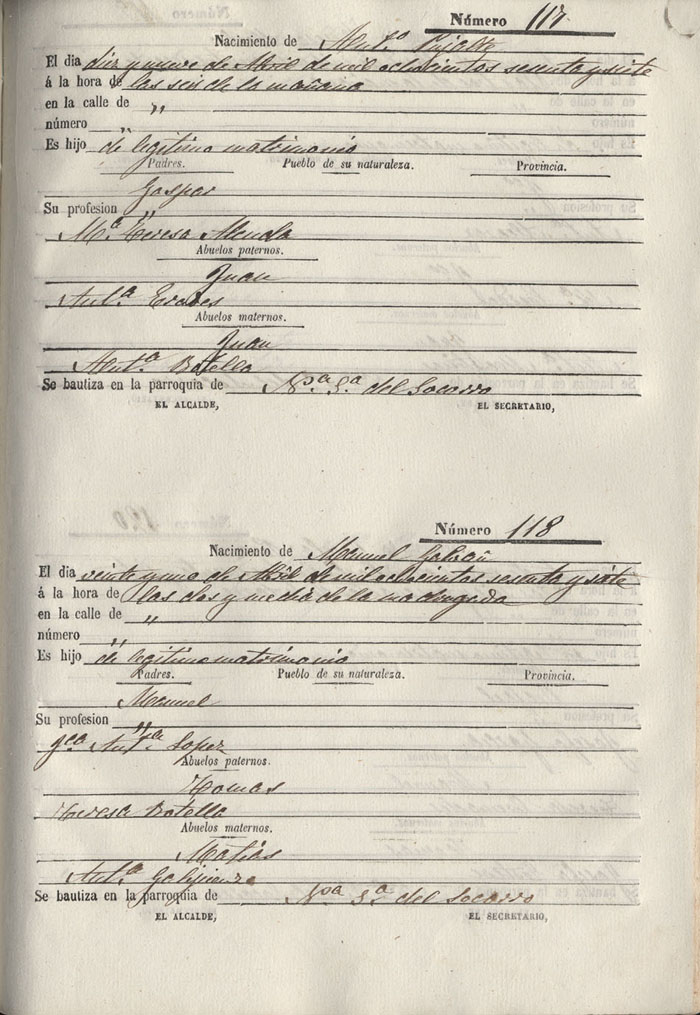 Número 117
Nacimiento de Ant.º Pujalte
El dia diez y nueve de Abril de mil ochocientos sesenta y siete
á la hora de las seis de la mañana
en la calle de "
número "
Es hijo de legitimo matrimonio
Padres. Pueblo de su naturaleza. Provincia.
Gaspar
Su profesion "
M.ª Teresa
Abuelos paternos.
Juan
Ant.ª
Abuelos maternos.
Juan
Ant.ª Botella
Se bautiza en la parroquia de N.ª S.ª del Socorro
EL ALCALDE, EL SECRETARIO,
Número 118
Nacimiento de Manuel Galvañ
El dia veinte y uno de Abril de mil ochocientos sesenta y siete
á la hora de las dos y media de la madrugada
en la calle de "
número "
Es hijo de legitimo matrimonio
Padres. Pueblo de su naturaleza. Provincia.
Manuel
Su profesion "
Lopez
Abuelos paternos.
Tomas
Teresa Botella
Abuelos maternos.
Matias
Ant.ª
Se bautiza en la parroquia de N.ª S.ª del Socorro
EL ALCALDE, EL SECRETARIO,